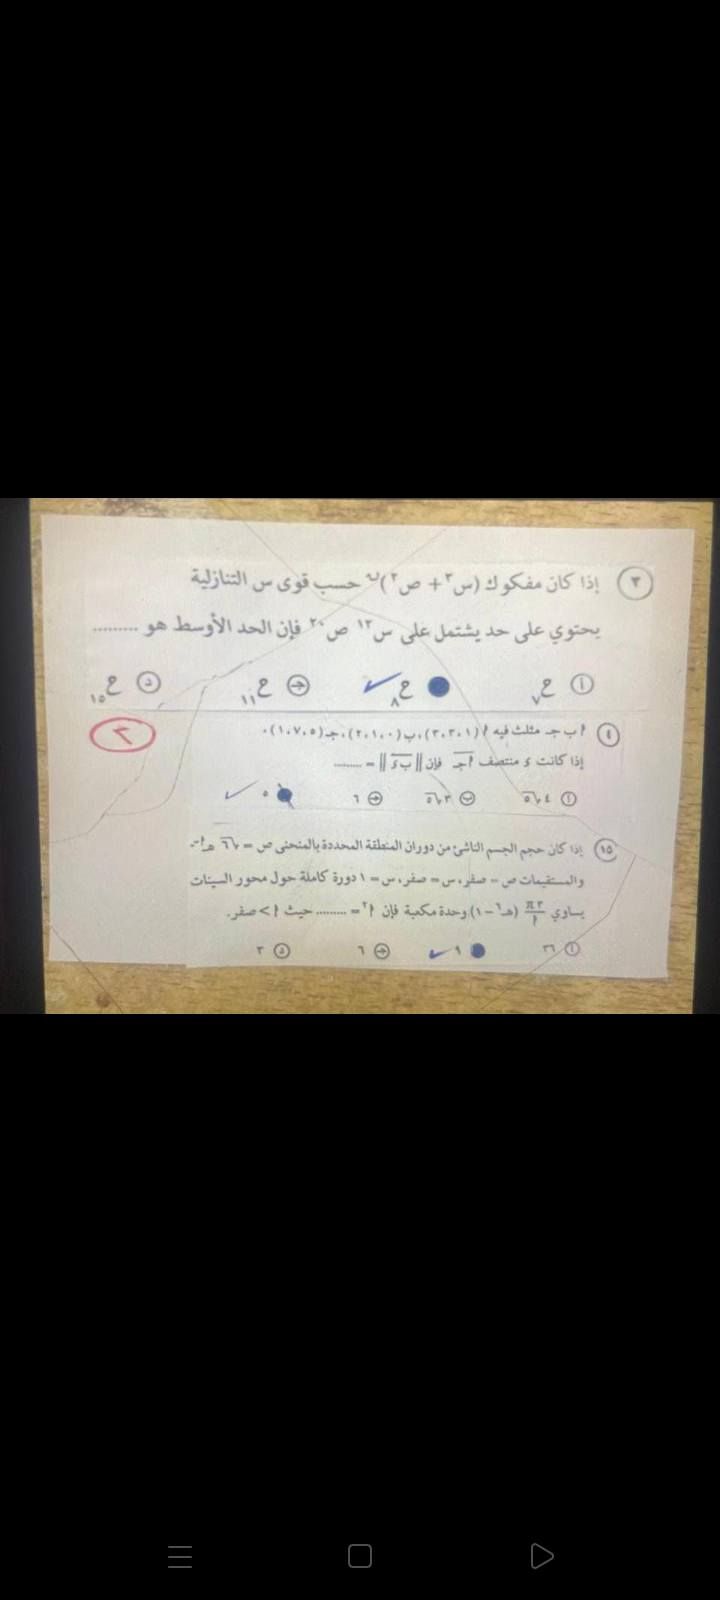 ٣ إذا كان مفكوك (س٣ + ص٢)ن حسب قوى س التنازلية
يحتوي على حد يشتمل على س١٢ ص٢٠ فإن الحد الأوسط هو .........
أ ح٧ ح٨ ج ح١١ د ح١٥
٣
٤ أ ب جـ مثلث فيه أ (٣،٣،١)، ب (٢،١،٠)، جـ (١،٧،٥)،
إذا كانت ء منتصف أجـ فإن || بء || = .........
أ ٤√٥ ب ٣√٥ ج ٦ ٥
١٥ إذا كان حجم الجسم الناشئ من دوران المنطقة المحددة بالمنحنى ص =
والمستقيمات ص = صفر، س = صفر، س = ١ دورة كاملة حول محور السينات
يساوي (هـ٦ - ١) وحدة مكعبة فإن أ٢ = ......... حيث أ > صفر.
أ ٣٦ ٩ ج ٦ د ٣